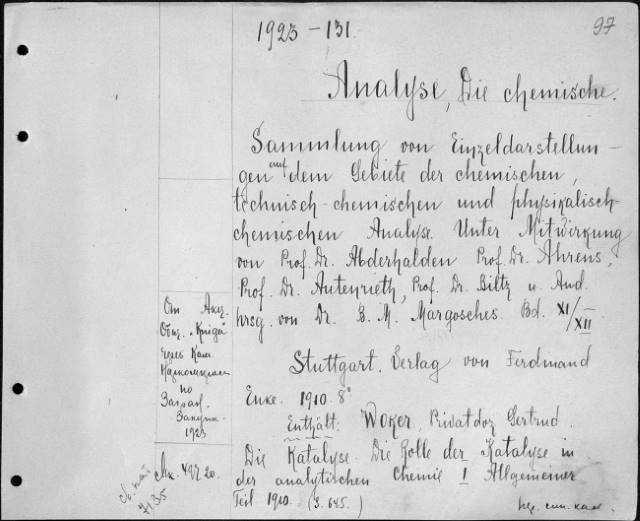 1923-131.
97
Analyse, Die chemische.
Sammlung von Einzeldarstellun-
gen auf dem Gebiete der chemischen,
technisch-chemischen und physikalisch
chemischen Analyse. Unter Mitwirkung
von Prof. Dr. Abderhalden Prof. Dr. Ahrens,
Prof. Dr. Autenrieth, Prof. Dr. Biltz u. And.
hrsg. von Dr. B. M. Margosches. Bd. XI/XII
Stuttgart. Verlag von Ferdinand
Enke. 1910. 8°
Enthält: Woker, Privatdoz Gertrud.
Die Katalyse. Die Rolle der Katalyse in
der analytischen Chemie I Allgemeiner
Teil 1910. (S. 645.)
От Акц.
Общ. "Книга
через Ком
по
Загран.
Закупк.
1923